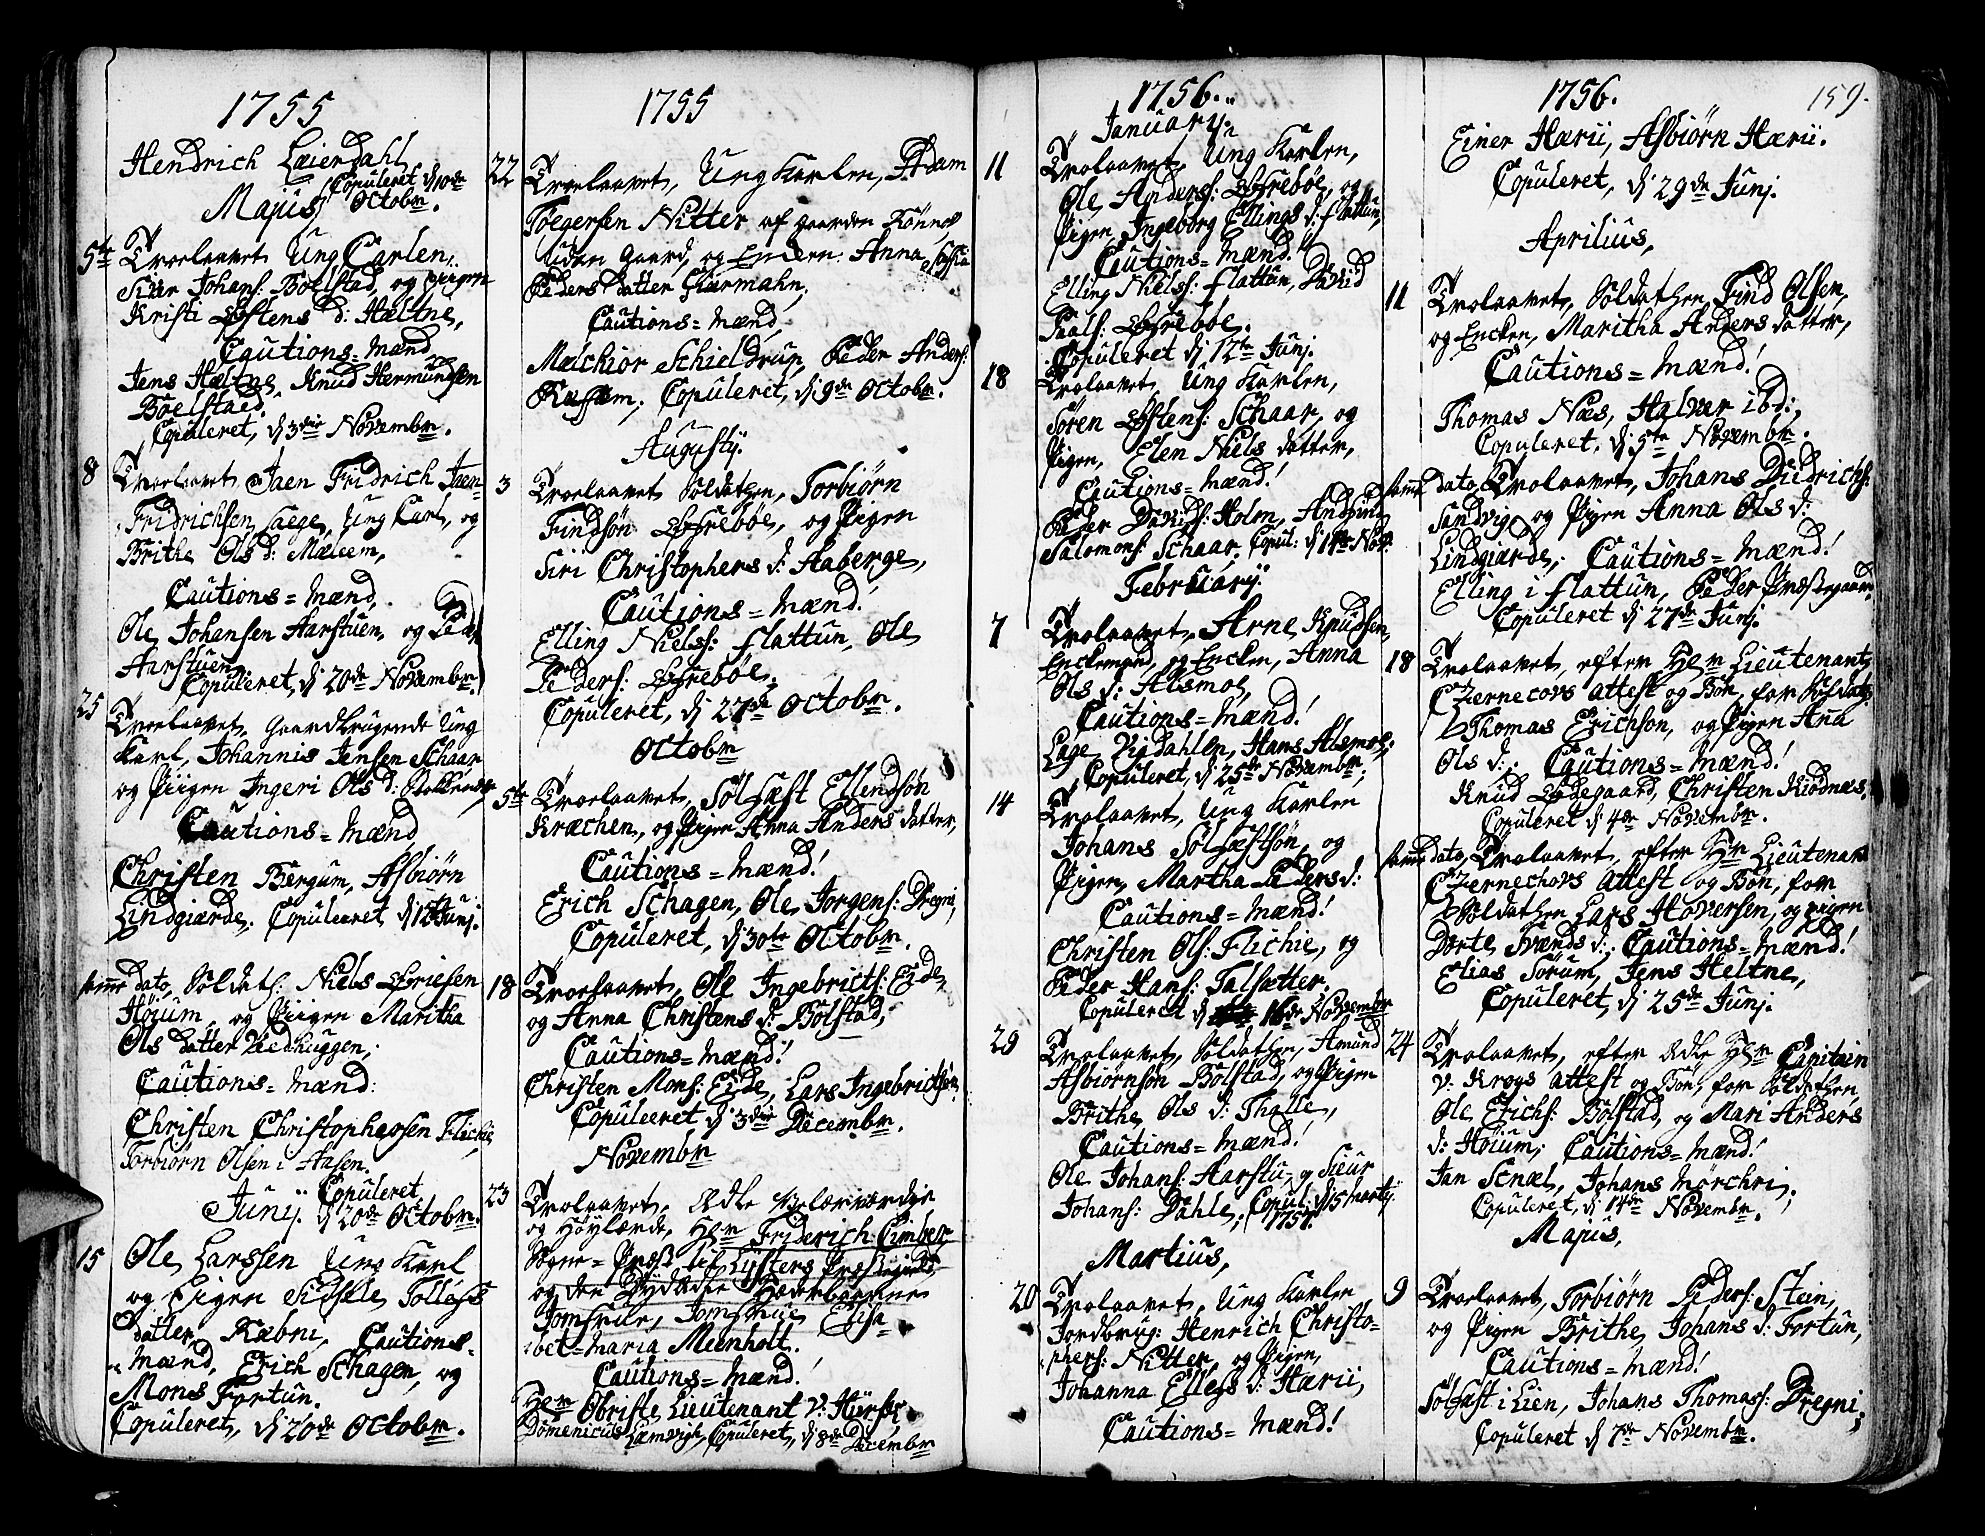 1755
Hendrich Leierdahl
Copuleret d 10de
Majus Octobr.
5te Troelaavet Ung Carlen,
Siver Johans: Boelstad, og Pigen
Kristi Østens d: Hæltne,
Cautions=Mænd
Jens Hæltne, Knud Hermundsen
Boelstaed.
Copuleret, d: 3die Novembr.
8 Troelaavet Jaen Fridrich Jaen
Fridrichsen Saege, Ung Karl, og
Brithe Ols d: Mæleem,
Cautions=Mænd,
Ole Johansen Aarstuen, og Peder
Aarstuen
Copuleret, d: 20de Novembr.
25 Troelaavet, Gaardbrugende Ung
Karl, Johannis Jensen Schaar
og Piigen Ingeri Ols d:
Cautions=Mænd
Christen Bergum, Asbiørn
Lindgiærde. Copuleeret d: Junj.
samme dato, Soldats: Niels
Høium, og Piigen Maritha
Ols datter Vedhuggen,
Cautions=Mænd:
Christen Christophersen Flichie,
Torbiørn Olsen i Aasen.
Copuleret
Junij. d: 20de Octobr.
15 Ole Larssen Ung Karl
og Pigen Sidsele Tollefs
datter Kæbni, Cautions=
Mænd, Erich Schagen, og
Mons Fortun.
Copuleret, d: 20de Octobr.
1755
22 Troelaavet, Ung Karlen, Adam
Toegersen Nitter af gaarden Rønnes
Uden Gaard, og Enchen Anna Sophia
Peders datter Kurmahn,
Cautions=Mænd,
Melchior Schieldrup, Peder Anders:
Copuleret, d: 9de Octobr.
Augusty.
3 Troelaavet Soldathen, Torbiørn
Findsøn Øfrebøe, og Pigen
Siri Christophers d: Aaberge,
Cautions=Mænd!
Elling Niels: Flattun, Ole
Peders: Øfrebøe,
Copuleret, d: 27de Octobr.
Octobr
5te Troelaavet, Solfæst Ellendsøn
Kræchen, og Pigen Anna Anders datter,
Cautions=Mænd!
Erich Schagen, Ole Jorgens: Dregni,
Copuleret, d: 30te Octobr.
18 Troelaavet, Ole Ingebricts: Eide,
og Anna Christens d: Bolstad,
Cautions=Mænd!
Christen Mons: Eide, Lars Ingebrictsøn,
Copuleeret, d: 3die Decembr.
Novembr
23 Trolaavet, Ædle Velærværdige
og Høylærde, Hr Friderich: Cimber
Sogne=Præst til Lysters Præstegield,
og den Dydædle
Jomfrue, Jomfrue Elisa=
bet=Maria Meinholt.
Cautions=Mænd!
Hr Obriste Lieutenant v:
Domenicus Lemvigh, Copuleret, d: 8de Decembr
1756.
January.
11 Trolaavet, Ung Karlen,
Ole Anders: Øfrebøe, og
Pigen, Ingeborg Ellings d: Flattun,
Cautions=Mænd!
Elling Niels: Flattun, David
Poals: Øfrebøe.
Copuleret d: 12te Junj.
18 Trolaavet, Ung Karlen,
Sören Østens: Schaar, og
Pigen, Elen Niels datter,
Cautions=Mænd!
Peder Davids: Holm,
Salomons: Schaar, Copul: d: Nov.
February.
7 Trolaavet, Arne Knudsen,
Enckemand, og Encken, Anna
Ols d: Alsmoe,
Cautions=Mænd!
Lage Vigdahlen, Hans Alsmoe,
Copuleret, d: 25de Novembr,
14 Trolaavet, Ung Karlen
Johans Solfæstsön, og
Pigen, Martha Peders d:
Cautions=Mænd!
Christen Ols: Flichie, og
Peder Hans: Talsætter.
Copuleret d: 16de Novembr
29 Trolaavet, Soldathen, Amund
Asbiørnsøn Bolstad, og Pigen
Brithe Ols d: Tholle,
Cautions=Mænd!
Ole Johans: Aarstu, og Sieur
Johans: Dahle, Copul: d: 15 Martij
1757.
Martius,
20 Trolaavet, Ung Karlen
Jordbrug: Henrich Christo=
phers: Nitter, og Pigen,
Johanna Ellefs d: Hærii,
Cautions=Mænd!
1756.
159.
Einer Hærii, Asbiørn Hærii.
Copuleret, d: 29de Junj.
Aprilius,
11 Trolaavet, Soldathen, Find Olsen,
og Encken, Maritha Anders datter,
Cautions=Mænd!
Thomas Næs, Halver ibd:,
Copuleret, d: 5te Novembr.
samme dato, Trolaavet, Johans Didrichs:
Sandvig, og Pigen Anna Ols d:
Lindgiærde, Cautions=Mænd!
Elling i Flattun, Peder Præstegaard,
Copuleret d: 27de Junj.
18 Trolaavet, efter Hr Lieutenant
Czernecovs Attest og Bøn, for Soldat
Thomas Erichsøn, og Pigen Ana
Ols d: Cautions=Mænd!
Knud Ødegaard, Christen Kiødnæs.
Copuleret d: 4de Novembr.
samme dato, Trolaavet, efter Hr Lieutenant
Czernechovs Attest og Bøn, for
Soldathen Lars Hoversen, og Pigen
Dorte Svends d:, Cautions=Mænd!
Elias Sörum, Jens Heltne,
Copuleret, d: 25de Junj.
24 Trolaavet, efter Ædle Hr Capitain
v: Kroys Attest og Bøn, for Soldathen,
Ole Erichs: Bolstad, og Mari Anders
d: Høium, Cautions=Mænd!
Jan Scnæl, Johans Mörchri,
Copuleret, d: 14de Novembr.
Majus,
9 Troelaavet, Torbiørn Peders: Stein,
og Pigen Brithe Johans d: Fortun,
Cautions=Mænd!
Solfæst i Lien, Johans Thomass: Dregni,
Copuleret d: 7de Novembr.